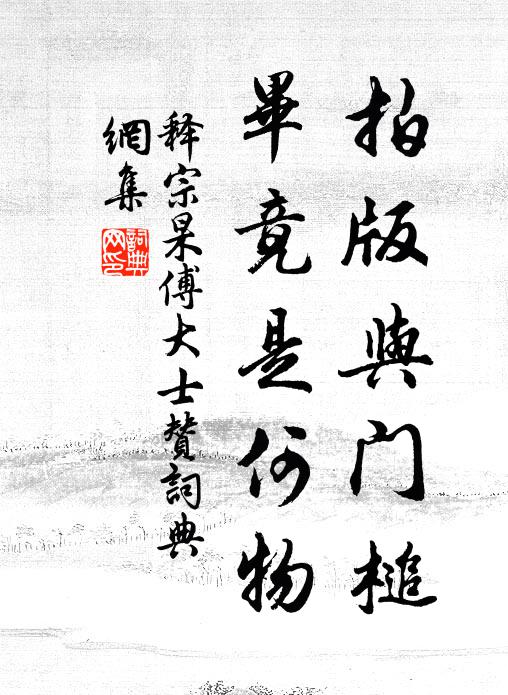 拍版與門槌
畢竟是何物
释宗杲傅大士赞詞典
網集
詞典
网印